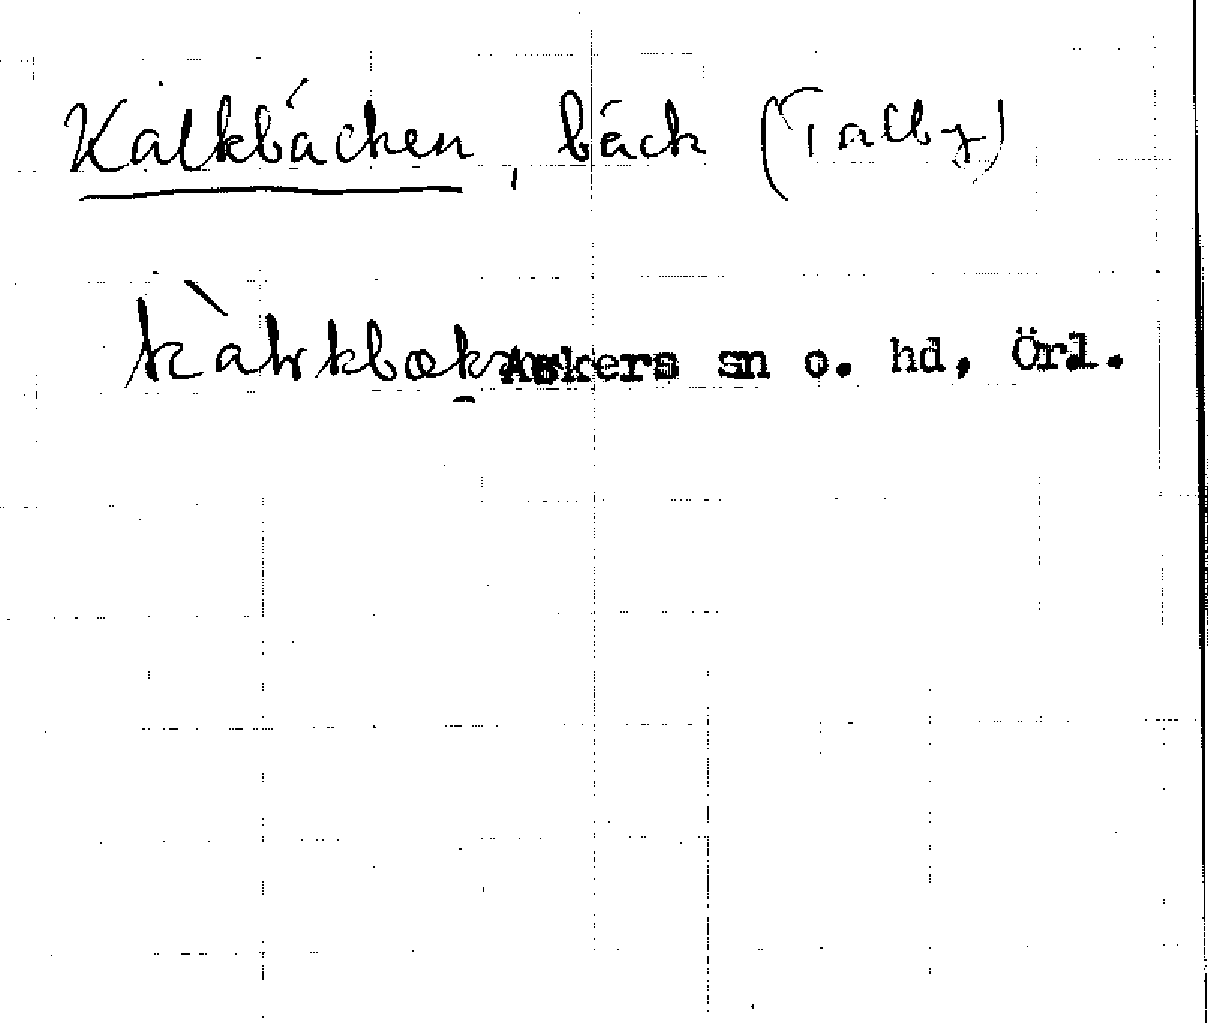 Kalkbäcken, bäck (Talby)
Askers sn o. hd, Örl.